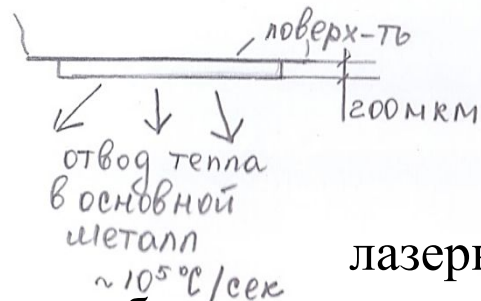 поверх-ть
200 мкм
отвод тепла
в основной
металл
~10⁵ °C/сек
лазерн